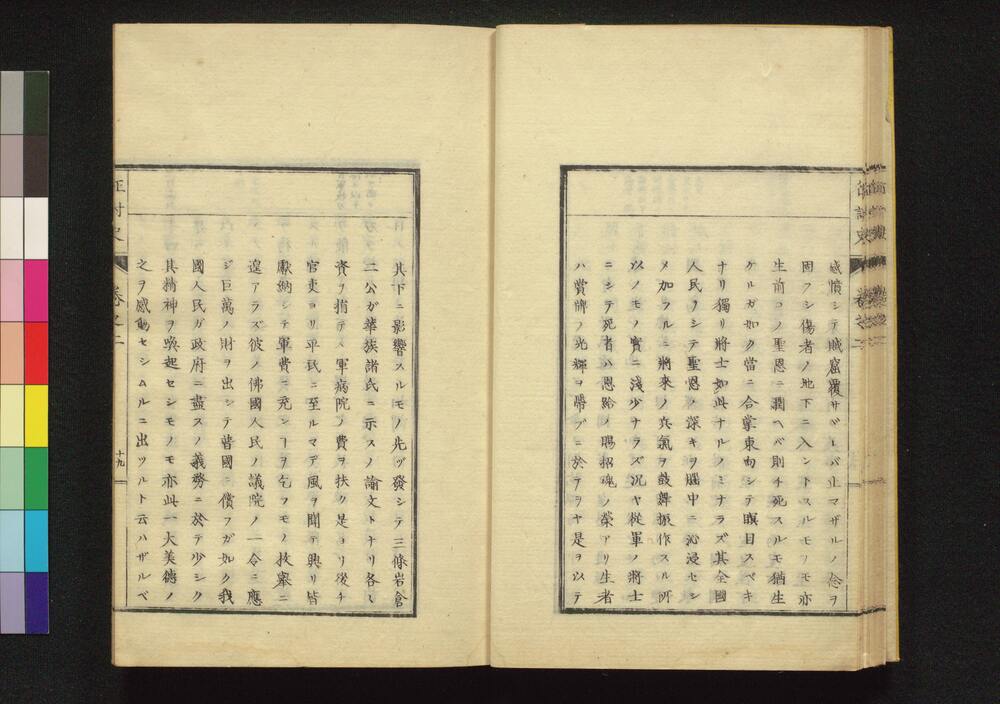 感憤シテ賊窟覆サゞレバ止マザルノ念ヲ
固フシ傷者ノ地下ニ入ントスルモノモ亦
生前コノ聖恩ニ潤ヘバ則チ死スルモ猶生
ケルガ如ク當ニ合掌東向シテ瞑目スベキ
ナリ獨リ將士如此ナルノミナラズ其全國
人民ヲシテ聖恩ノ深キヲ腦中ニ沁浸セシ
メ加フルニ將來ノ兵氣ヲ鼓舞振作スル所
以ノモノ實ニ淺少ナラズ況ヤ從軍ノ將士
ニシテ死者ハ恩給ノ賜招魂ノ榮アリ生者
ハ賞牌ノ光輝ヲ帶ブニ於テヲヤ是ヲ以テ
其下ニ影響スルモノ先ヅ發シテ三條岩倉
二公ガ華族諸氏ニ示スノ諭文トナリ各〻
資ヲ捐テヽ軍病院ノ費ヲ扶ク是ヨリ後チ
官吏ヨリ平民ニ至ルマデ風ヲ聞テ興リ皆
獻納シテ軍費ニ充ンヿヲ乞フモノ枚擧ニ
遑アラズ彼ノ佛國人民ノ議院ノ一令ニ應
ジ巨萬ノ財ヲ出シテ普國ニ償フガ如ク我
國人民ガ政府ニ盡スノ義務ニ於テ少シク
其精神ヲ喚起セシモノモ亦此一大美德ノ
之ヲ感動セシムルニ出ヅルト云ハザルベ
征討史 卷之二 十九